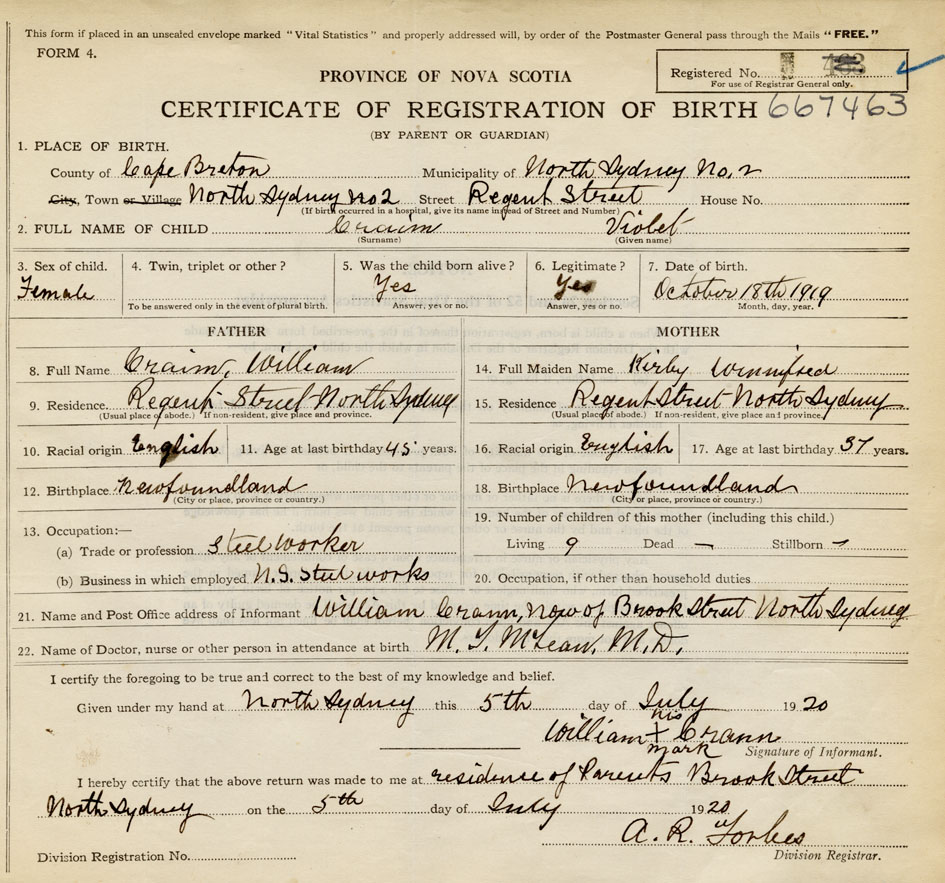 This form if placed in an unsealed envelope marked "Vital Statistics" and properly addressed will, by order of the Postmaster General pass through the Mails "FREE."
FORM 4.
Registered No.
For use of Registrar General only.
PROVINCE OF NOVA SCOTIA
CERTIFICATE OF REGISTRATION OF BIRTH 667463
(BY PARENT OR GUARDIAN)
1. PLACE OF BIRTH.
County of Cape Breton Municipality of North Sydney No. 2
City, Town or Village North Sydney No 2 Street Regent Street House No.
(If birth occurred in a hospital, give its name instead of Street and Number)
2. FULL NAME OF CHILD Crann Violet
(Surname) (Given name)
3. Sex of child. 4. Twin, triplet or other? 5. Was the child born alive? 6. Legitimate? 7. Date of birth.
Female Yes Yes October 18th 1919
To be answered only in the event of plural birth. Answer, yes or no. Answer, yes or no. Month, day, year.
FATHER MOTHER
8. Full Name Crann, William 14. Full Maiden Name Kirby Winnifred
9. Residence. Regent Street North Sydney 15. Residence Regent Street North Sydney
(Usual place of abode.) If non-resident, give place and province. (Usual place of abode.) If non-resident, give place and province.
10. Racial origin English 11. Age at last birthday 45 years. 16. Racial origin English 17. Age at last birthday 37 years.
12. Birthplace Newfoundland 18. Birthplace Newfoundland
(City or place, province or country.) (City or place, province or country.)
13. Occupation:— 19. Number of children of this mother (including this child.)
(a) Trade or profession Steel worker Living 9 Dead — Stillborn —
(b) Business in which employed N.S. Steel works 20. Occupation, if other than household duties
21. Name and Post Office address of Informant William Crann, Now of Brook Street North Sydney
22. Name of Doctor, nurse or other person in attendance at birth M. T. McLean, M.D.
I certify the foregoing to be true and correct to the best of my knowledge and belief.
Given under my hand at North Sydney this 5th day of July 1920
his
William + Crann
mark Signature of Informant.
I hereby certify that the above return was made to me at residence of Parents Brook Street
North Sydney on the 5th day of July 1920
A. R. Forbes
Division Registration No. Division Registrar.